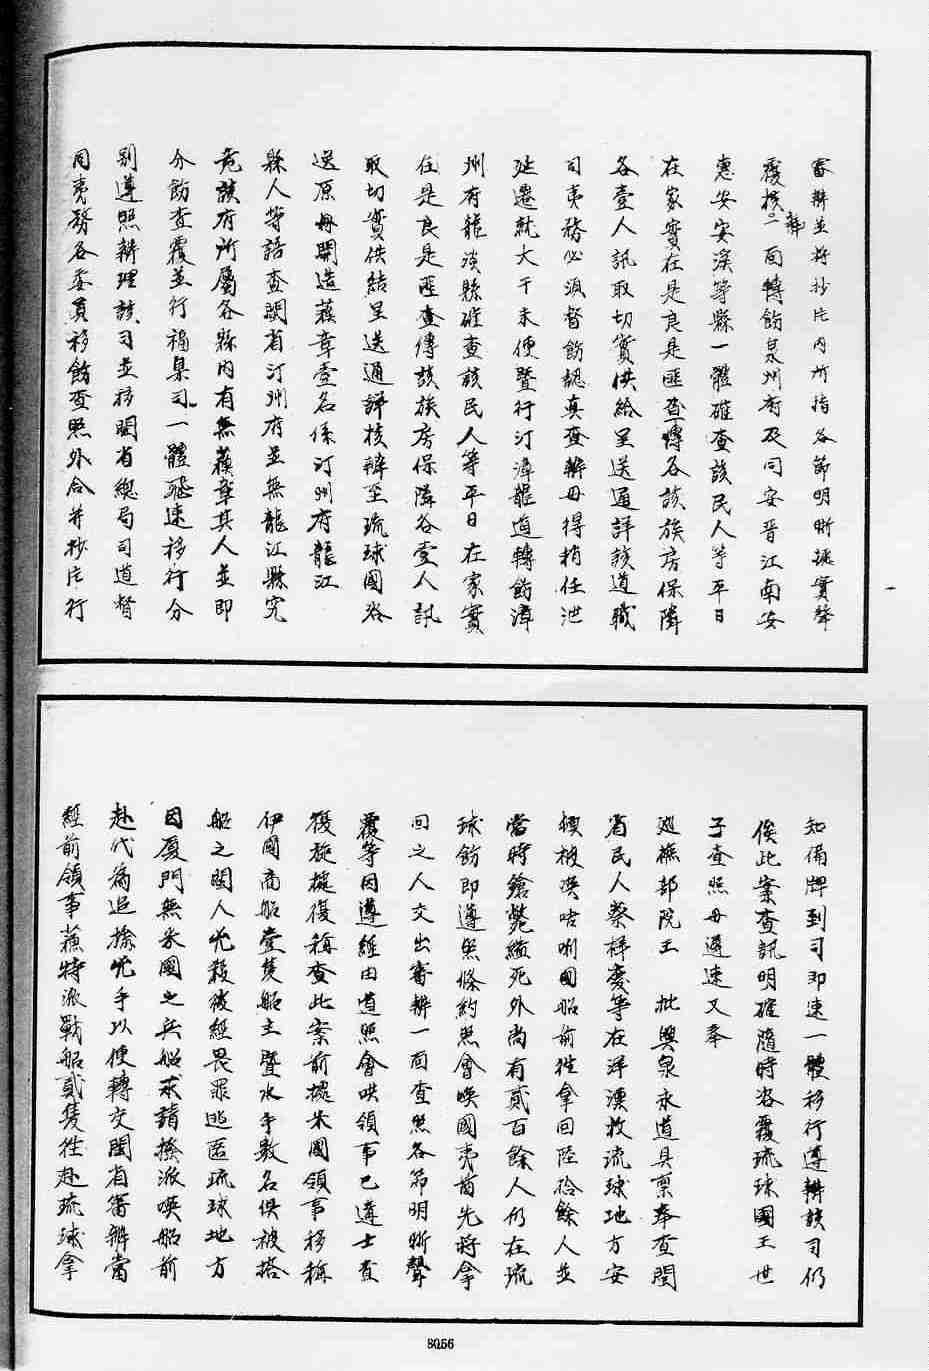 審辦並將抄片內所指各節明晰據實聲
覆核辦一面轉飭泉州府及同安晉江南安
惠安安溪等縣一體確查該民人等平日
在家實在是良是匪查傳各該族房保隣
各壹人訊取切實供給呈送通詳該道職
司夷務必須督飭認真查辦毋得稍任泄
延遷就大干未便暨行汀漳龍道轉飭漳
州府龍溪縣確查該民人等平日在家實
在是良是匪查傳該族房保隣各壹人訊
取切實供結呈送通詳核辦至琉球國咨
送原冊開造蘇章壹名係汀州府龍江
縣人等語查閩省汀州府並無龍江縣究
竟該府所屬各縣內有無蘇章其人並即
分飭查覆並行福臬司一體飛速移行分
別遵照辦理該司並移閩省總局司道督
同夷務各委員移飭查照外合并抄片行
知備牌到司即速一體移行遵辦該司仍
俟此案查訊明確隨時咨覆琉球國王世
子查照毋遲速又奉
巡撫部院王　批興泉永道具稟奉查閩
省民人蔡祥慶等在洋漂收流球地方安
頓被喚咭唎國船前往拿回陸拾餘人並
當時鎗斃縊死外尚有貳百餘人仍在琉
球飭即遵照條約照會喚國夷酋先將拿
回之人交出審辦一面查照各節明晰聲
覆等因遵經由道照會哄領事巴遵士查
復旋據復稱查此案前據米國領事移稱
伊國商船壹隻船主暨水手數名俱被搭
船之閩人兇殺彼經畏罪逃匿琉球地方
因廈門無米國之兵船求請撥派喚船前
赴代為追擒兇手以便轉交閩省審辦當
經前領事蘇特派戰船貳隻往赴琉球拿
8056